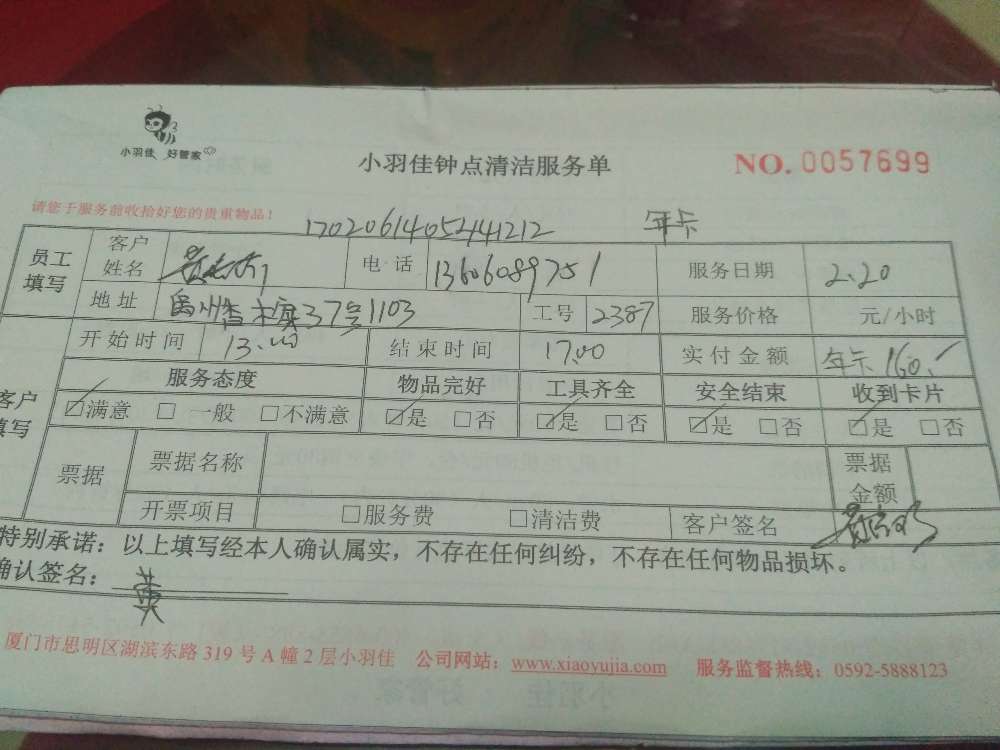 小羽佳 好管家
小羽佳钟点清洁服务单
NO. 0057699
请您于服务前收拾好您的贵重物品！
17020614052441212 年卡
员工填写 客户姓名 电话 13606089751 服务日期 2.20
地址 禹州香木寓37号1103 工号 2387 服务价格 元/小时
开始时间 13:00 结束时间 17:00 实付金额 年卡160.
客户填写 服务态度 物品完好 工具齐全 安全结束 收到卡片
☑满意 □一般 □不满意 ☑是 □否 ☑是 □否 ☑是 □否 ☑是 □否
票据 票据名称 票据金额
开票项目 □服务费 □清洁费 客户签名
特别承诺：以上填写经本人确认属实，不存在任何纠纷，不存在任何物品损坏。
确认签名：黄
厦门市思明区湖滨东路 319 号 A 幢 2 层小羽佳 公司网站：www.xiaoyujia.com 服务监督热线：0592-5888123